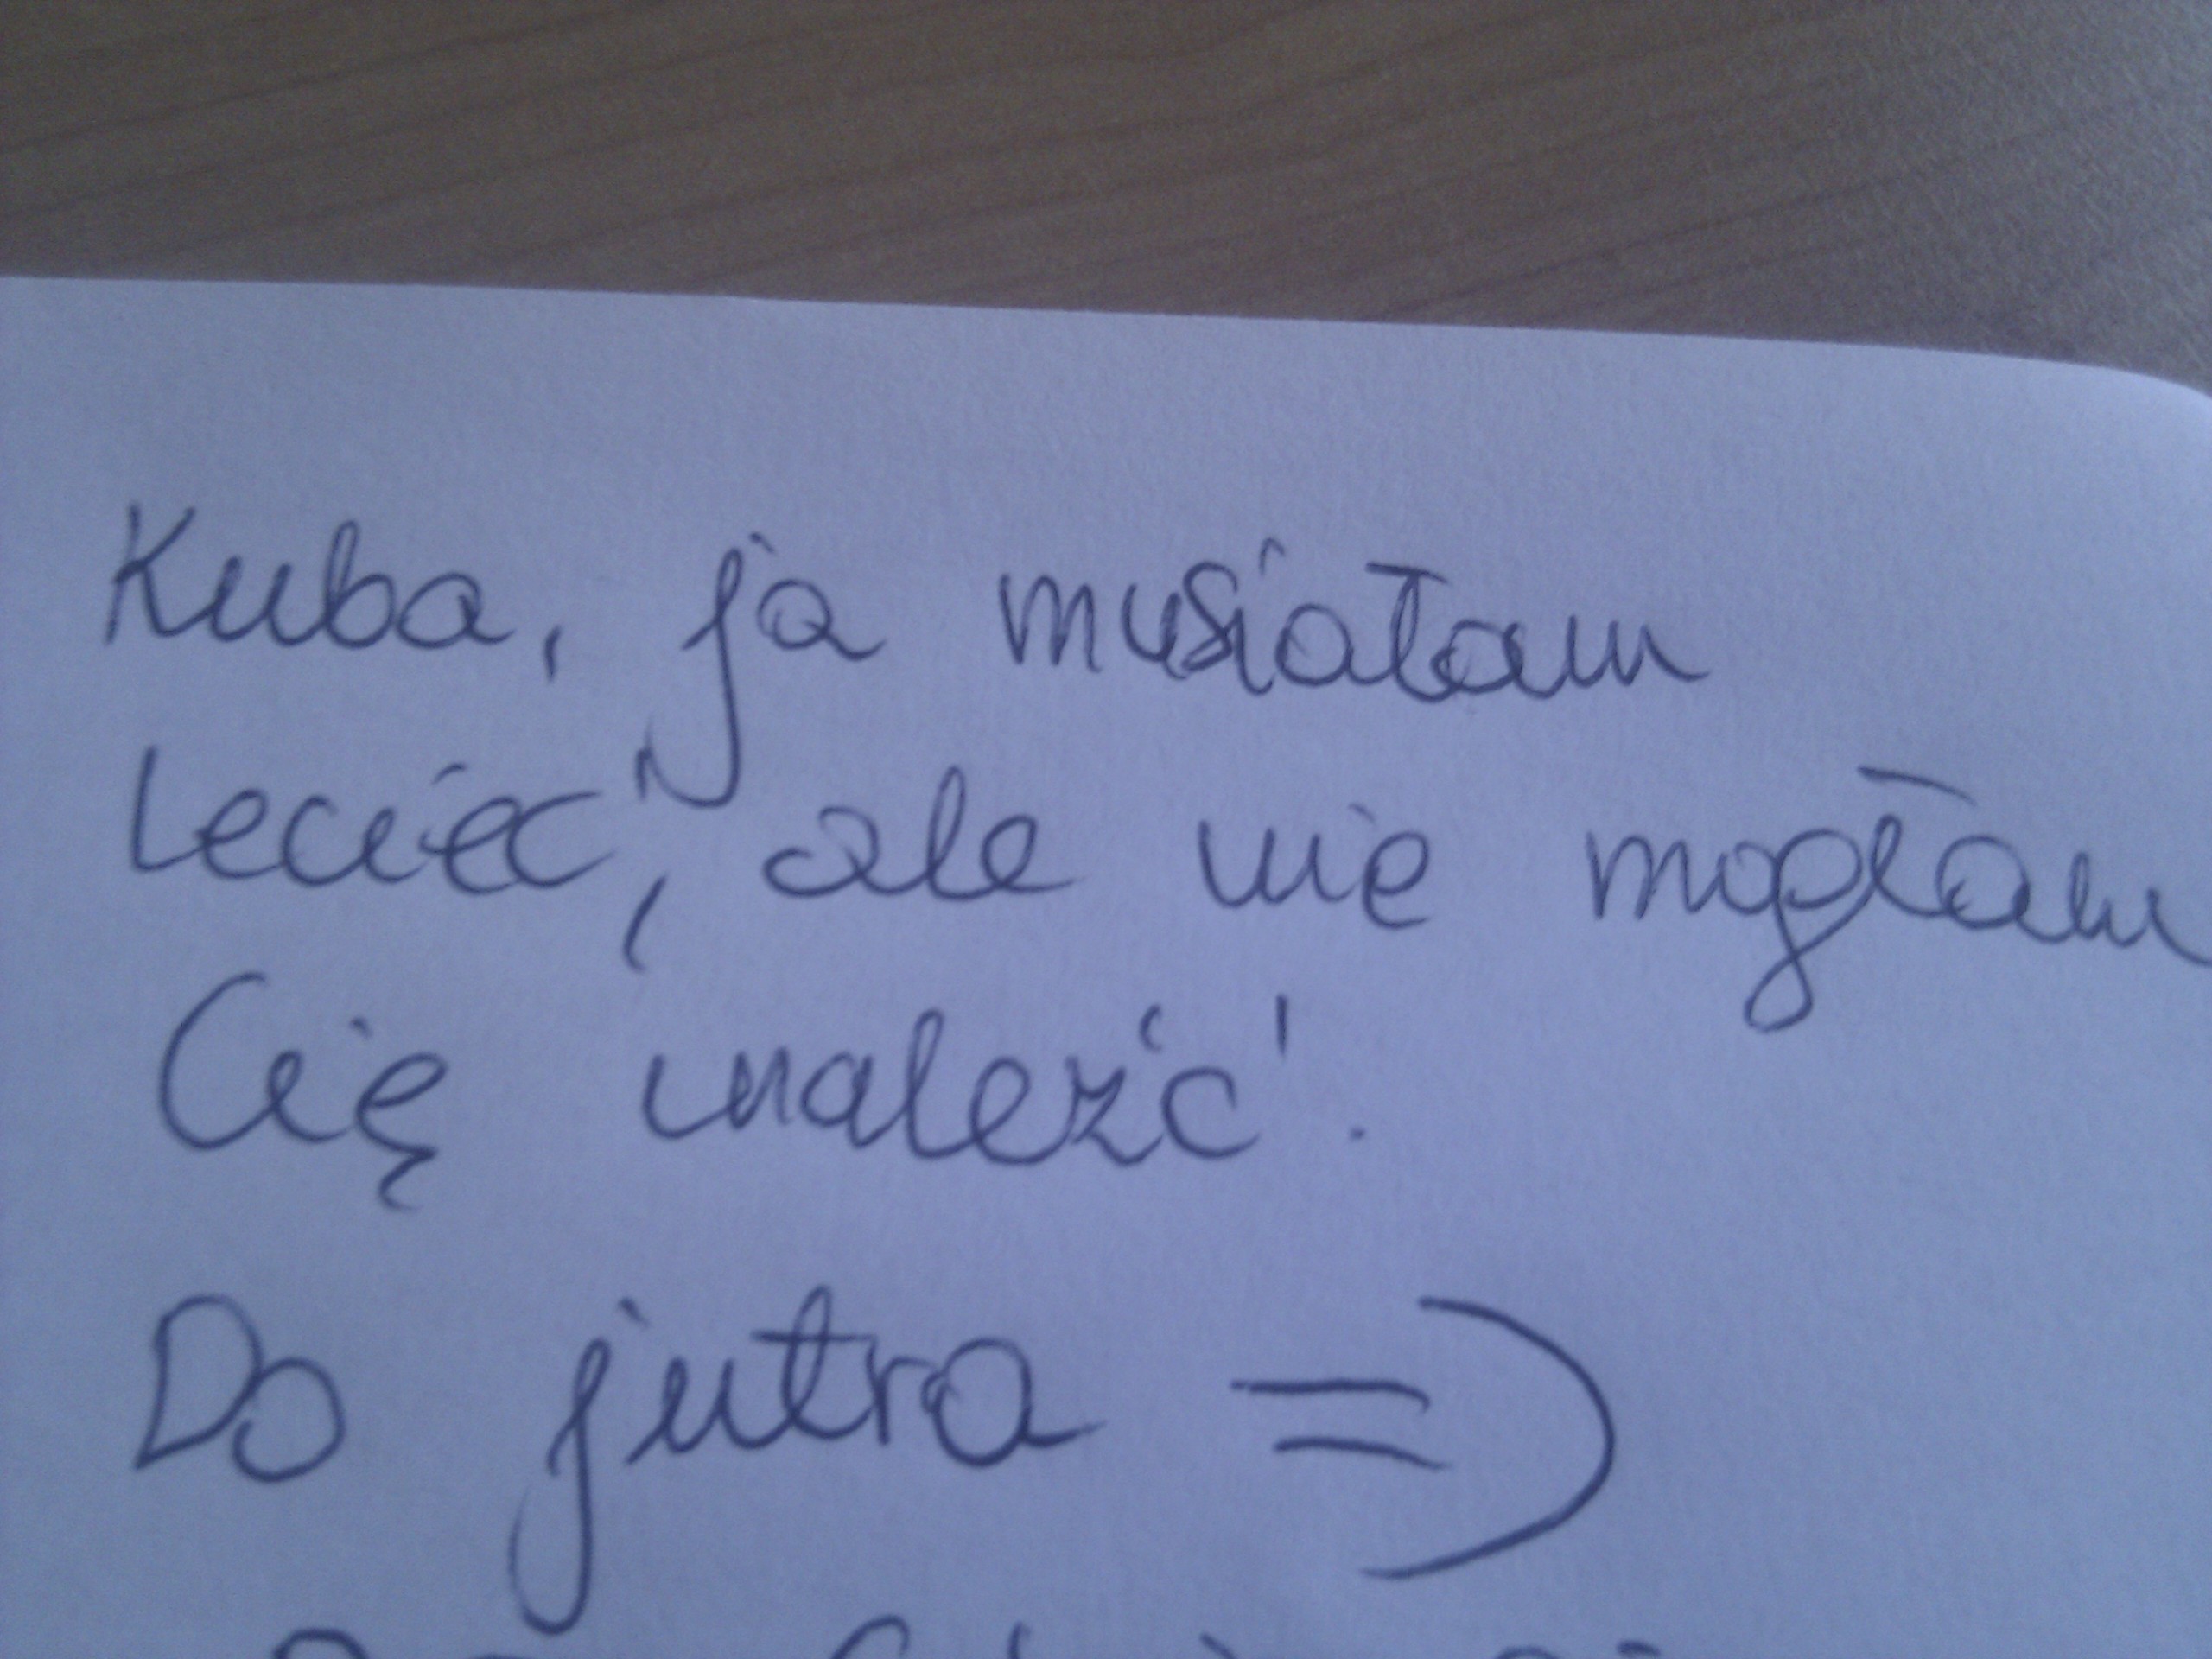 Kuba, ja musiałam
lecieć, ale nie mogłam
Cię znaleźć.
Do jutra =)